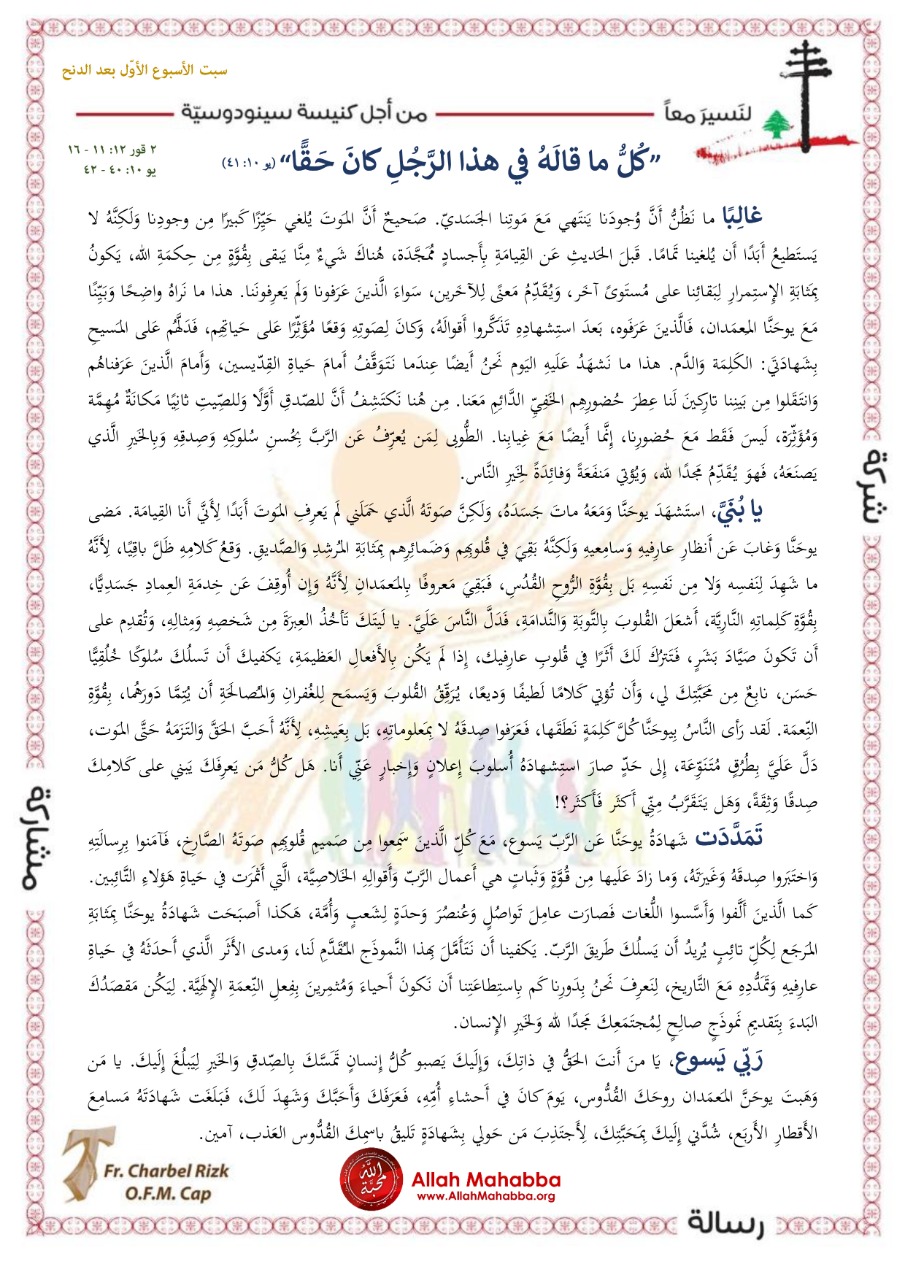 سبت الأسبوع الأوّل بعد الدنح
لنَسيرَ معاً
من أجل كنيسة سينودوسيّة
٢ قور ١٢: ١١ - ١٦
يو ١٠: ٤٠ - ٤٢
”كُلُّ ما قالَهُ في هذا الرَّجُلِ كانَ حَقًّا“ (يو ١٠: ٤١)
غالِبًا ما نَظُنُّ أَنَّ وُجودَنا يَنتَهي مَعَ مَوتِنا الجَسَديّ. صَحيحٌ أَنَّ المَوتَ يُلغي حَيِّزًا كَبيرًا مِن وجودِنا وَلَكِنَّهُ لا
يَستَطيعُ أَبَدًا أَن يُلغينا تَمامًا. قَبلَ الحَديثِ عَن القِيامَةِ بِأَجسادٍ مُمَجَّدة، هُناكَ شَيءٌ مِنَّا يَبقى بِقُوَّةٍ مِن حِكمَةِ الله، يَكونُ
بِمَثابَةِ الإِستِمرارِ لِبَقائِنا على مُستَوىً آخر، وَيُقَدِّمُ مَعنًى لِلآخرين، سَواءَ الَّذينَ عَرَفونا وَلَم يَعرِفونَنا. هذا ما نَراهُ واضِحًا وَبَيِّنًا
مَعَ يوحَنَّا المِعمَدان، فَالَّذينَ عَرَفوه، بَعدَ استِشهادِهِ تَذَكَّروا أَقوالَهُ، وَكانَ لِصَوتِهِ وَقعًا مُؤَثِّرًا عَلى حَياتِهِم، فَدَلَّهُم عَلى المَسيحِ
بِشَهادَتَي: الكَلِمَة وَالدَّم. هذا ما نَشهَدُ عَلَيهِ اليَوم نَحنُ أَيضًا عِندَما نَتَوَقَّفُ أَمامَ حَياةِ القِدّيسين، وَأَمامَ الَّذينَ عَرَفناهُم
وَانتَقَلوا مِن بَينِنا تارِكينَ لَنا عِطرَ حُضورِهِم الخَفِيِّ الدَّائِمِ مَعَنا. مِن هُنا نَكتَشِفُ أَنَّ للصّدقِ أَوَّلًا وَللصّيتِ ثانِيًا مَكانَةٌ مُهِمَّة
وَمُؤَثِّرَة، لَيسَ فَقَط مَعَ حُضورِنا، إِنَّما أَيضًا مَعَ غِيابِنا. الطُّوبى لِمَن يُعرِّفُ عَن الرَّبَّ بِحُسنِ سُلوكِهِ وَصِدقِهِ وَبِالخَيرِ الَّذي
يَصنَعَهُ، فَهوَ يُقَدِّمُ مَجدًا لله، وَيُؤتي مَنفَعَةً وَفائِدَةً لِخَيرِ النَّاس.
يا بُنَيَّ، استَشهَدَ يوحَنَّا وَمَعَهُ ماتَ جَسَدَهُ، وَلَكِنَّ صَوتَهُ الَّذي حَمَلَني لَم يَعرِفِ المَوتَ أَبَدًا لِأَنّي أَنا القِيامَة. مَضى
يوحَنَّا وَغابَ عَن أَنظارِ عارِفيهِ وَسامِعيهِ وَلَكِنَّهُ بَقِيَ في قُلوبِهِم وَضَمائِرِهِم بِمَثابَةِ المُرشِدِ وَالصَّديقِ. وَقعُ كَلامِهِ ظَلَّ باقِيًا، لِأَنَّهُ
ما شَهِدَ لِنَفسِهِ وَلا مِن نَفسِهِ بَل بِقُوَّةِ الرُّوحِ القُدُس، فَبَقِيَ مَعروفًا بِالمَعمَدانِ لِأَنَّهُ وَإِن أُوقِفَ عَن خِدمَةِ العِمادِ جَسَديًّا،
بِقُوَّةِ كَلِماتِهِ النَّارِيَّة، أَشعَلَ القُلوبَ بِالتَّوبَةِ وَالنَّدامَةِ، فَدَلَّ النَّاسَ عَلَيَّ. يا لَيتَكَ تَأخُذُ العِبرَةَ مِن شَخصِهِ وَمِثالِهِ، وَتُقدِم على
أَن تَكونَ صَيَّادَ بَشَرٍ، فَتَترُكَ لَكَ أَثرًا في قلوبِ عارِفيك، إِذا لَم يَكُن بِالأَفعالِ العَظيمَةِ، يَكفيكَ أَن تَسلُكَ سُلوكًا خُلُقِيًّا
حَسَن، نابِعٌ مِن مَحَبَّتِكَ لي، وَأَن تُؤتي كَلامًا لَطيفًا وَديعًا، يُرَقِّقُ القُلوبَ وَيَسمَح لِلغُفرانِ وَالمُصالَحَةِ أَن يُتِمَّا دَورَهُما، بِقُوَّةِ
النِّعمَة. لَقَد رَأى النَّاسُ بِيوحَنَّا كُلَّ كَلِمَةٍ نَطَقَها، فَعَرَفوا صِدقَهُ لا بِمَعلوماتِهِ، بَل بِعَيشِهِ، لِأَنَّهُ أَحَبَّ الحَقَّ وَالتَزَمَهُ حَتَّى المَوت،
دَلَّ عَلَيَّ بِطُرُقٍ مُتَنَوِّعَة، إِلى حَدٍّ صارَ استِشهادَهُ أُسلوبَ إِعلانٍ وَإِخبارٍ عَنّي أَنا. هَل كُلُّ مَن يَعرِفكَ يَبني على كَلامِكَ
صِدقًا وَثِقَةً، وَهَل يَتَقَرَّبُ مِنّي أَكثَر فَأَكثَر؟!
تَمَدَّدَت شَهادَةُ يوحَنَّا عَن الرَّبِّ يَسوع، مَعَ كُلِّ الَّذينَ سَمِعوا مِن صَميمِ قُلوبِهِم صَوتَهُ الصَّارِخ، فَآمَنوا بِرِسالَتِهِ
وَاختَبَروا صِدقَهُ وَغَيرَتَهُ، وَما زادَ عَلَيها مِن قُوَّةٍ وَثَباتٍ هي أَعمال الرَّبّ وَأَقوالِهِ الخَلاصِيَّة، الَّتي أَثمَرَت في حَياةِ هَؤلاءِ التَّائِبين.
كَما الَّذينَ أَلَّفوا وَأَسَّسوا اللُّغات فَصارَت عامِلَ تَواصُلٍ وَعُنصُرَ وَحدَةٍ لِشَعبٍ وَأُمَّة، هَكذا أَصبَحَت شَهادَةُ يوحَنَّا بِمَثابَةِ
المَرجَعِ لِكُلِّ تائِبٍ يُريدُ أَن يَسلُكَ طَريقَ الرَّبّ. يَكفينا أَن نَتَأَمَّلَ بِهذا النَّموذَجِ المُقَدَّمِ لَنا، وَمَدى الأَثَرِ الَّذي أَحدَثَهُ في حَياةِ
عارِفيهِ وَتَمَدُّدِهِ مَعَ التَّاريخ، لِنَعرِفَ نَحنُ بِدَورِنا كَم بِاستِطاعَتِنا أَن نَكونَ أَحياءَ وَمُثمِرينَ بِفِعلِ النِّعمَةِ الإِلَهِيَّة. لِيَكُن مَقصَدُكَ
البَدءَ بِتَقديمِ نَموذَجٍ صالِحٍ لِمُجتَمَعِكَ مَجدًا لله وَلِخَيرِ الإِنسان.
رَبّي يَسوع، يَا مَن أَنتَ الحَقُّ في ذاتِكَ، وَإِلَيكَ يَصبو كُلُّ إِنسانٍ تَمَسَّكَ بِالصّدقِ وَالخَيرِ لِيَبلُغَ إِلَيكَ. يا مَن
وَهَبتَ يوحَنَّ المَعمَدان روحَكَ القُدُّوس، يَومَ كانَ في أَحشاءِ أُمِّهِ، فَعَرَفَكَ وَأَحَبَّكَ وَشَهِدَ لَكَ، فَبَلَغَت شَهادَتَهُ مَسامِعَ
الأَقطارِ الأَربَع، شُدَّني إِلَيكَ بِمَحَبَّتِكَ، لِأَجتَذِبَ مَن حَولي بِشَهادَةٍ تَليقُ باسمِكَ القُدُّوس العَذب، آمين.
شركة
مشاركة
رسالة
Fr. Charbel Rizk
O.F.M. Cap
الله محبّة
Allah Mahabba
www.AllahMahabba.org